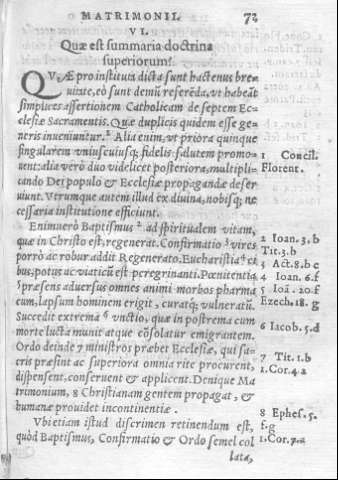 MATRIMONII. 73
VI.
Quæ est summaria doctrina
superiorum?
QVÆ pro instituta dicta sunt hactenus bre-
uitate, eò sunt demū referēda, vt habeāt
simplices assertionem Catholicam de septem Ec-
clesiæ Sacramentis. Quæ duplicis quidem esse ge-
neris inueniuntur.¹ Alia enim, vt priora quinque
singularem vniuscuiusq; fidelis salutem promo-
uent: alia verò duo videlicet posteriora, multipli-
cando Dei populo & Ecclesiæ propagandæ deser
uiunt. Vtrumque autem illud ex diuina, nobisq; ne
cessaria institutione efficiunt.
1 Concil.
Florent.
Enimuerò Baptismus ² ad spiritualem vitam,
quæ in Christo est, regenerat. Confirmatio ³ vires
porrò ac robur addit Regenerato. Eucharistia ⁴ ci
bus, potus ac viaticū est peregrinanti. Pœnitentia
⁵ præsens aduersus omnes animi morbos pharma
cum, lapsum hominem erigit, curatq; vulneratū.
Succedit extrema ⁶ vnctio, quæ in postrema cum
morte lucta munit atque cōsolatur emigrantem.
Ordo deinde ⁷ ministros præbet Ecclesiæ, qui sa-
cris præsint ac superiora omnia rite procurent,
dispensent, conseruent & applicent. Denique Ma
trimonium, 8 Christianam gentem propagat, &
humanæ prouidet incontinentiæ.
2 Ioan. 3. b
Tit. 3. b
3 Act. 8. b c
4 Ioan. 6. f
5 Ioā. 20. f
Ezech. 18. g
6 Iacob. 5. d
7 Tit. 1. b
1. Cor. 4 a
8 Ephes. 5.
f. g
1. Cor. 7. a
Vbi etiam istud discrimen retinendum est,
quòd Baptismus, Confirmatio & Ordo semel col
lata,